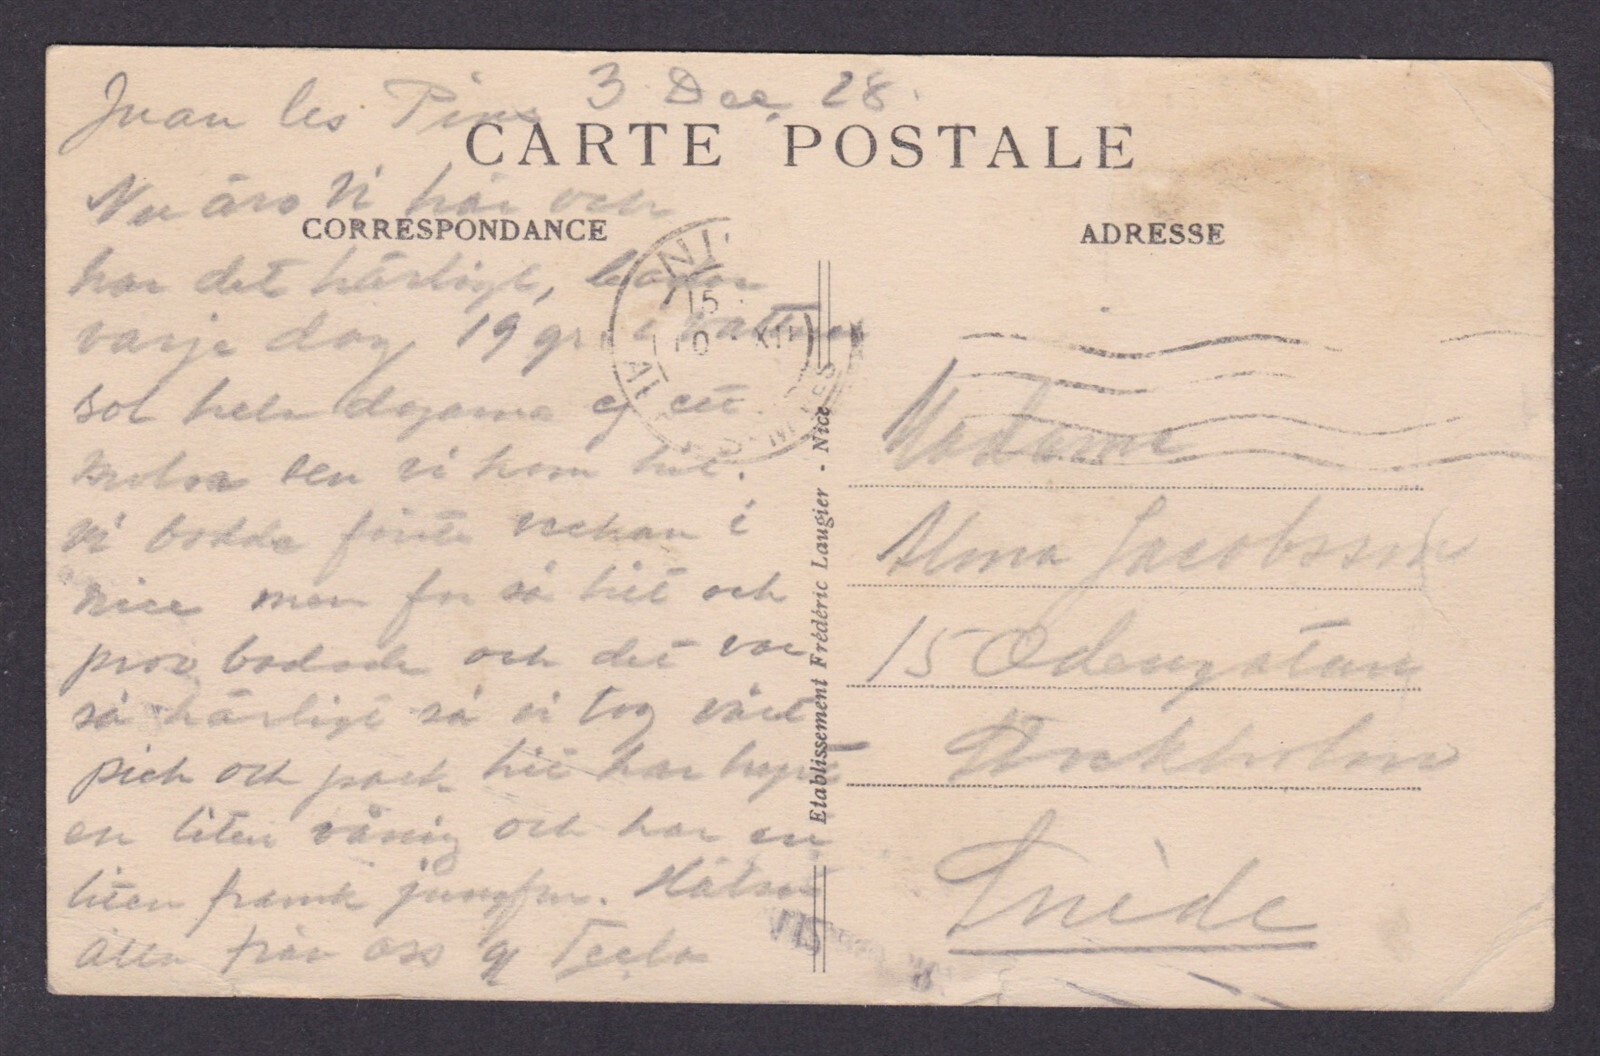 Juan les Pins 3 Dec. 28.
CARTE POSTALE
Nu äro Vi här och
CORRESPONDANCE
har det härligt, badar
varje dag, 19 gr i vattnet
sol hela dagarna ej ett
moln sen vi kom hit.
Vi bodde första veckan i
Nice men for så hit och
prov badade och det var
så härligt så vi tog vårt
pick och pack hit har hyrt
en liten våning och har en
liten fransk jungfru. Hälsa
Alla från oss
Etablissement Frédéric Laugier - Nice
NI
15
ADRESSE
Madame
Alma Jacobsson
15 Odengatan
Stockholm
Suède